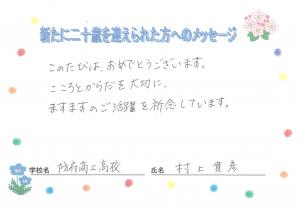 新たに二十歳を迎えられた方へのメッセージ
このたびは、おめでとうございます。
こころとからだを大切に、
ますますのご活躍を祈念しています。
学校名 防府商工高校 氏名 村上貴彦